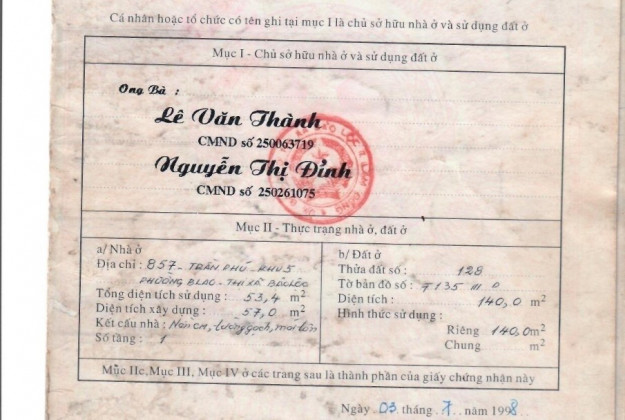 Cá nhân hoặc tổ chức có tên ghi tại mục I là chủ sở hữu nhà ở và sử dụng đất ở
Mục I - Chủ sở hữu nhà ở và sử dụng đất ở
Ông Bà :
Lê Văn Thành
CMND số 250063719
Nguyễn Thị Đỉnh
CMND số 250261075
Mục II - Thực trạng nhà ở, đất ở
a/ Nhà ở
Địa chỉ : 857 - TRẦN PHÚ - KHU 5
PHƯỜNG BLAO - THỊ XÃ BẢO LỘC
Tổng diện tích sử dụng : 53,4 m²
Diện tích xây dựng : 57,0 m²
Kết cấu nhà : Nền CM, tường gạch, mái tôn
Số tầng : 1
b/ Đất ở
Thửa đất số : 128
Tờ bản đồ số : F135 III D
Diện tích : 140,0 m²
Hình thức sử dụng :
Riêng 140,0m²
Chung m²
Mục IIc, Mục III, Mục IV ở các trang sau là thành phần của giấy chứng nhận này
Ngày 03 tháng 7 năm 1998